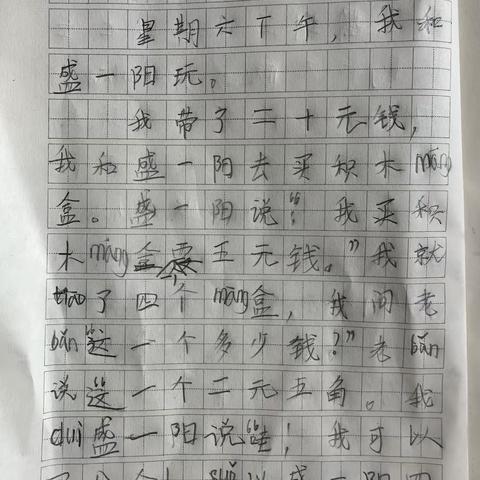 星期六下午，我和
盛一阳玩。
我带了二十元钱，
我和盛一阳去买积木māng
盒。盛一阳说：“我买积
木māng盒要五元钱。”我就
tiāo了四个māng盒，我问老
bǎn“这一个多少钱？”老bǎn
说“这一个二元五角。我
duì盛一阳说“哇！我可以